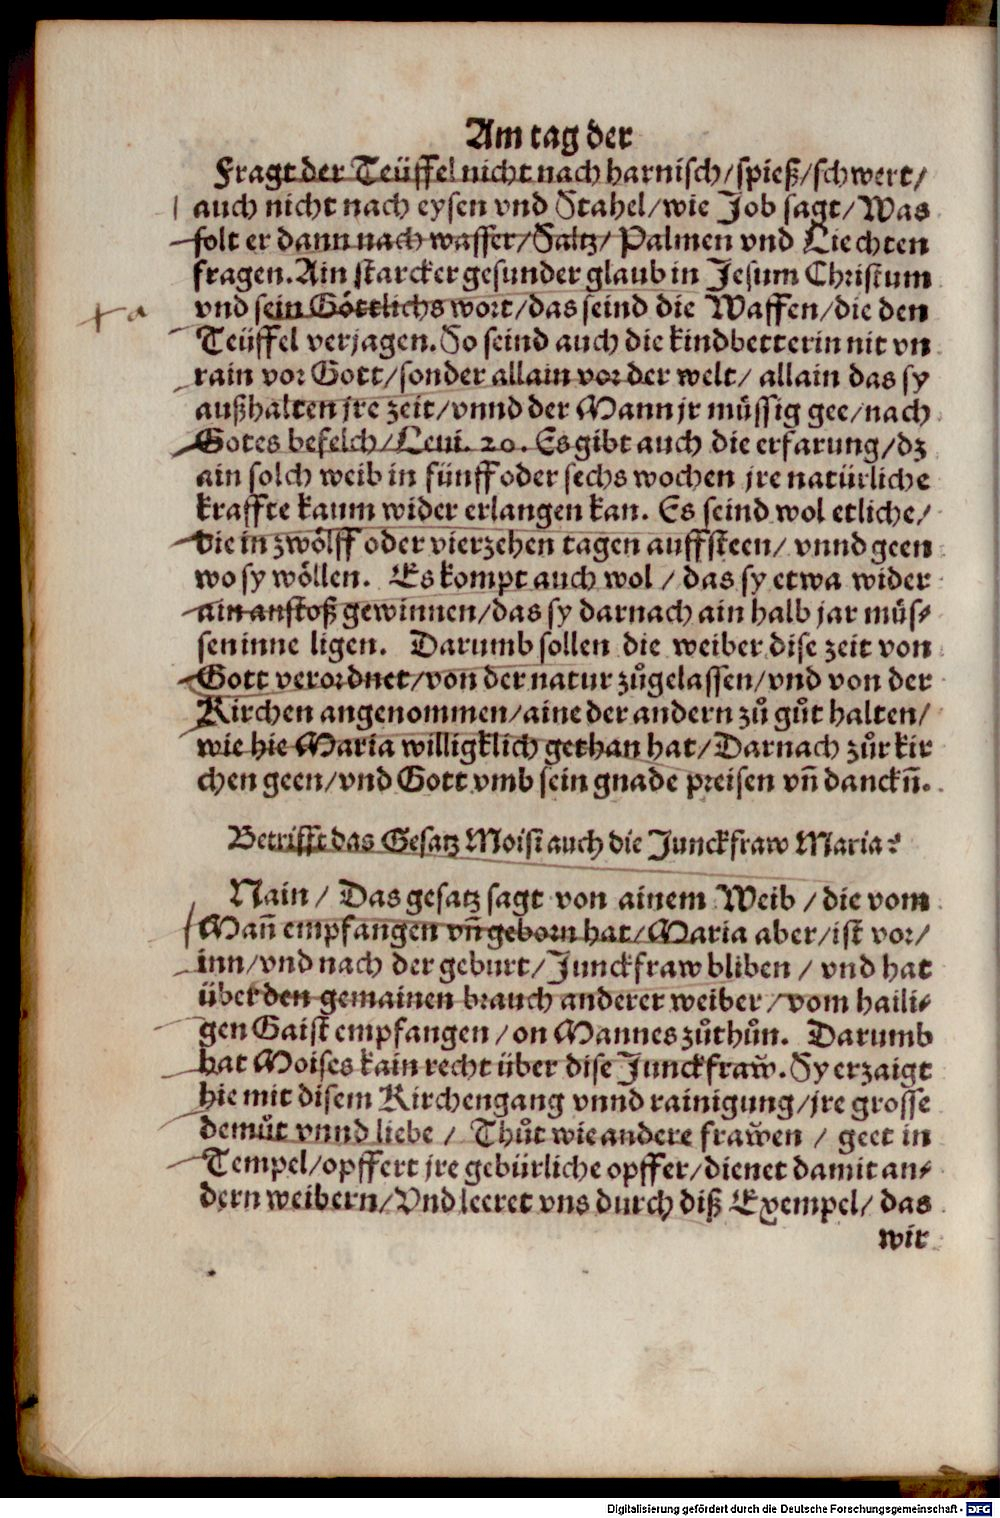 Am tag der
Fragt der Teüffel nicht nach harnisch/spieß/schwert/
auch nicht nach eysen vnd Stahel/wie Job sagt/Was
solt er dann nach wasser/Saltz/Palmen vnd Liechten
fragen. Ain starcker gesunder glaub in Jesum Christum
vnd sein Göttlichs wort/das seind die Waffen/die den
Teüffel verjagen. So seind auch die kindbetterin nit vn
rain vor Gott/sonder allain vor der welt/ allain das sy
außhalten jre zeit/vnnd der Mann jr müssig gee/nach
Gotes befelch/Leui. 20. Es gibt auch die erfarung/dz
ain solch weib in fünff oder sechs wochen jre natürliche
kraffte kaum wider erlangen kan. Es seind wol etliche/
die in zwölff oder vierzehen tagen auffsteen/ vnnd geen
wo sy wöllen. Es kompt auch wol / das sy etwa wider
ain anstoß gewinnen/das sy darnach ain halb jar müs⸗
sen inne ligen. Darumb sollen die weiber dise zeit von
Gott verordnet/von der natur zůgelassen/vnd von der
Kirchen angenommen/aine der andern zů gůt halten/
wie hie Maria willigklich gethan hat/Darnach zůr kir
chen geen/vnd Gott vmb sein gnade preisen vn̄ danckn̄.
Betrifft das Gesatz Moisi auch die Junckfraw Maria?
Nain / Das gesatz sagt von ainem Weib / die vom
Man̄ empfangen vn̄ geborn hat/Maria aber/ist vor/
inn/vnd nach der geburt/Junckfraw bliben / vnd hat
über den gemainen brauch anderer weiber/vom haili⸗
gen Gaist empfangen/on Mannes zůthůn. Darumb
hat Moises kain recht über dise Junckfraw̆. Sy erzaigt
hie mit disem Kirchengang vnnd rainigung/jre grosse
demůt vnnd liebe / Thůt wie andere fraw̆en / geet in
Tempel/opffert jre gebürliche opffer/dienet damit an⸗
dern weibern/Vnd leeret vns durch diß Exempel/ das
wir
+ a
Digitalisierung gefördert durch die Deutsche Forschungsgemeinschaft - DFG